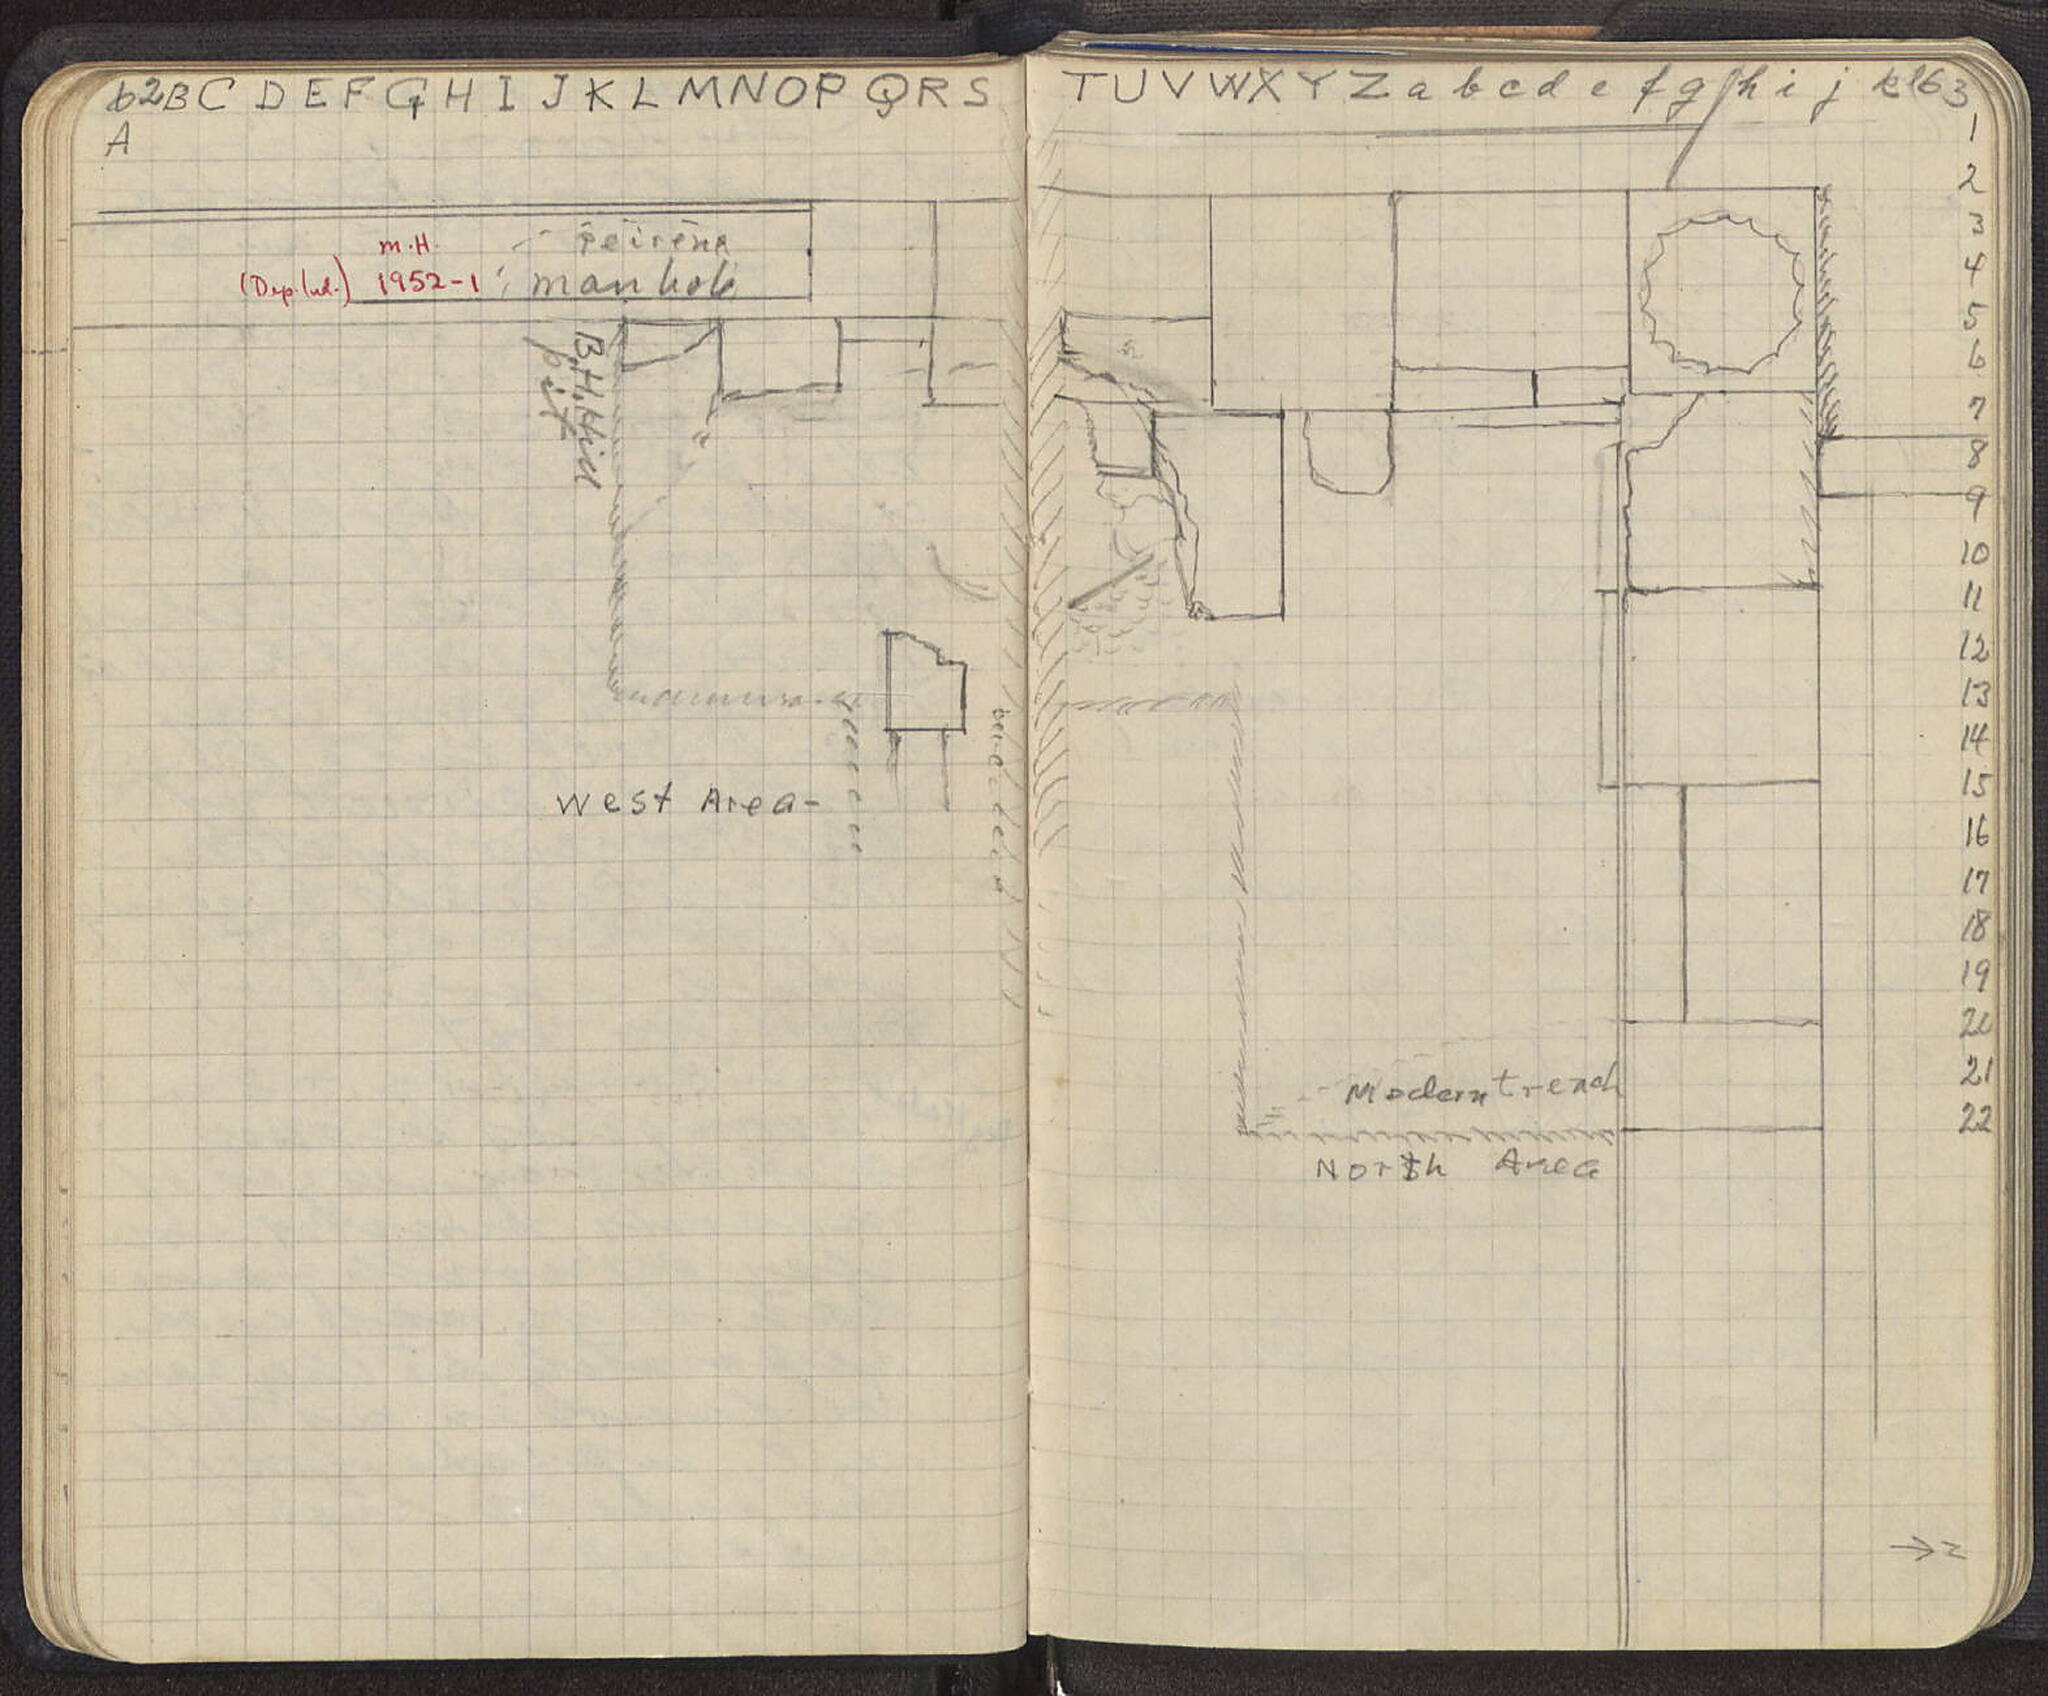 62 B C D E F G H I J K L M N O P Q R S
A
Peirene
m.H.
(Dep. Ind.) 1952-1 : manhole
B.H.Hill
pit
West Area-
T U V W X Y Z a b c d e f g h i j k l 63
1
2
3
4
5
6
7
8
9
10
11
12
13
14
15
16
17
18
19
20
21
22
Modern trench
North Area
→ z